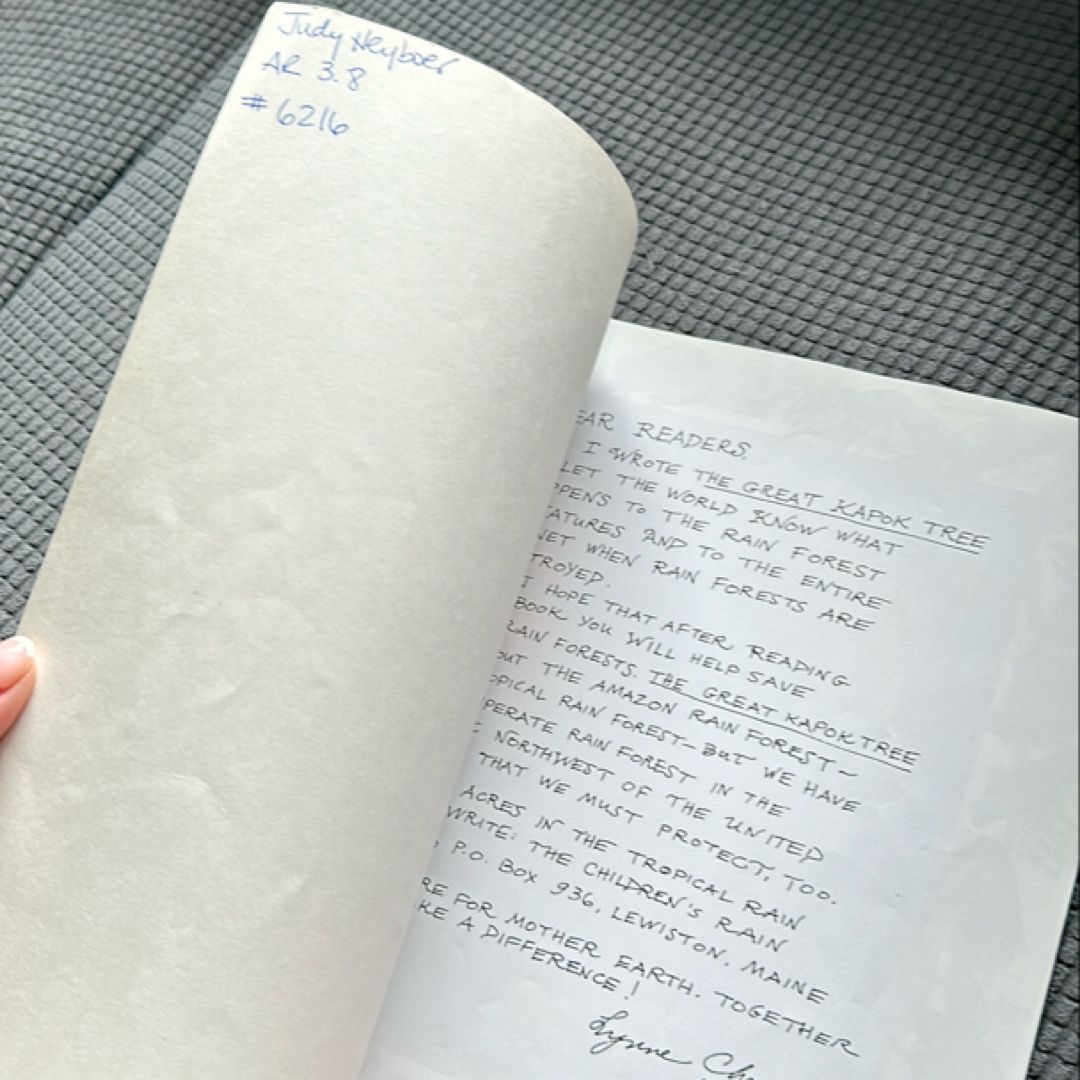 Judy Heyboer
AR 3.8
#6216
EAR READERS,
I WROTE THE GREAT KAPOK TREE
LET THE WORLD KNOW WHAT
PPENS TO THE RAIN FOREST
EATURES AND TO THE ENTIRE
NET WHEN RAIN FORESTS ARE
TROYED.
I HOPE THAT AFTER READING
BOOK YOU WILL HELP SAVE
RAIN FORESTS. THE GREAT KAPOK TREE
OUT THE AMAZON RAIN FOREST—
OPICAL RAIN FOREST—BUT WE HAVE
PERATE RAIN FOREST IN THE
NORTHWEST OF THE UNITED
THAT WE MUST PROTECT, TOO.
ACRES IN THE TROPICAL RAIN
WRITE: THE CHILDREN'S RAIN
P.O. BOX 936, LEWISTON, MAINE
RE FOR MOTHER EARTH. TOGETHER
KE A DIFFERENCE!
Lynne Che